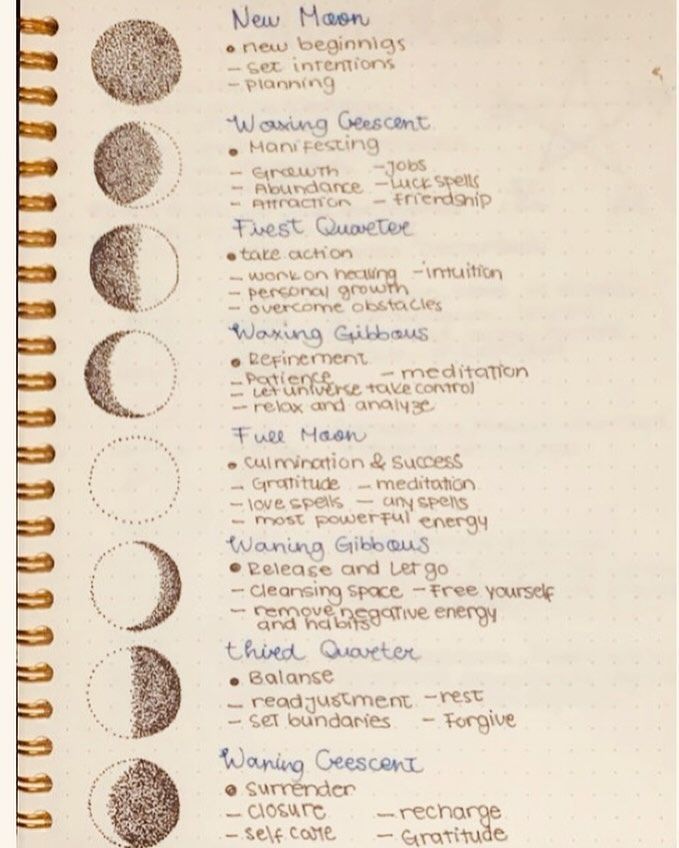 New Moon
• new beginnigs
- set intentions
- planning
Waxing Crescent
• Manifesting
- Growth - Jobs
- Abundance - Luck spells
- Attraction - friendship
First Quarter
• take action
- work on healing - intuition
- personal growth
- overcome obstacles
Waxing Gibbous
• Refinement
- Patience - meditation
- Let universe take control
- relax and analyze
Full Moon
• culmination & success
- Gratitude - meditation
- love spells - any spells
- most powerful energy
Waning Gibbous
• Release and Let go
- cleansing space - Free yourself
- remove negative energy
and habits
third Quarter
• Balanse
- readjustment - rest
- set bundaries - Forgive
Waning Crescent
• surrender
- closure - recharge
- self care - Gratitude